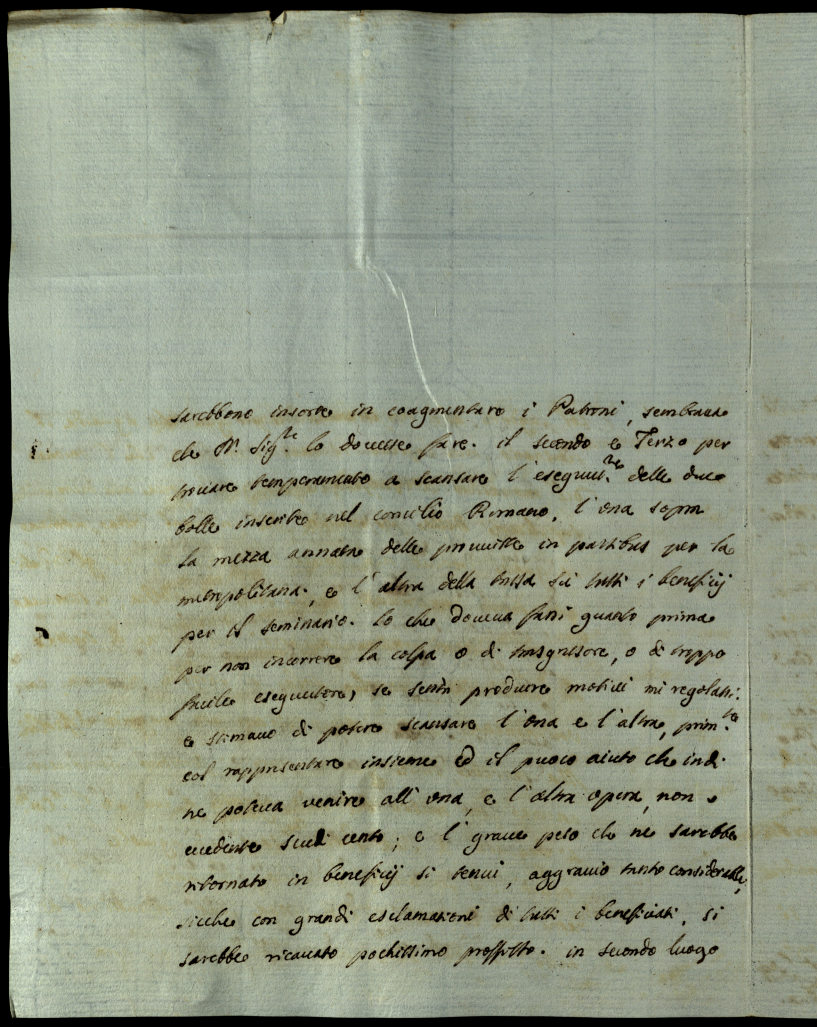 sarebbono insorte in coagmentare i Patroni, sembraua
che N. Sig.re lo douesse fare. il secondo e Terzo per
trouare temperamento a scansare l'esequut.ne delle due
bolle inserite nel concilio Romano, l'una sopra
la mezza annata delle prouuiste in partibus per la
metropolitana, e l'altra della tassa su tutti i beneficij
per il seminario. lo che doueua farsi quanto prima
per non incorrere la colpa o di trasgressore, o di troppo
facile esequutore, se senza produrre motiui mi regolassi.
e stimauo di potere scansare l'una e l'altra, prim.te
col rappresentare insieme ed il puoco aiuto che indi
ne poteua venire all'una, e l'altra opera, non e
ecedente scudi cento; e l'graue peso che ne sarebbe
ritornato in beneficij si tenui, aggrauio tanto considerabile,
sicche con grandi esclamationi di tutti i beneficiati, si
sarebbe ricauato pochissimo proffitto. in secondo luogo